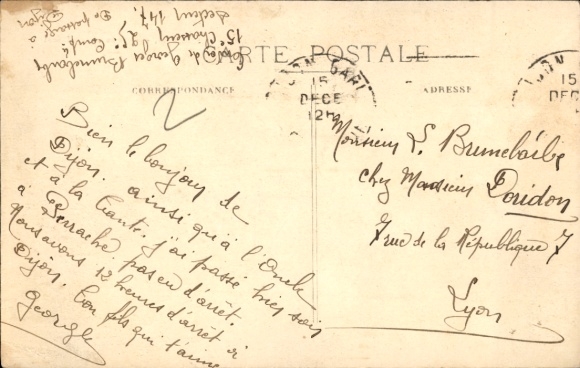 CARTE POSTALE
CORRESPONDANCE
ADRESSE
DIJON GARE
15
DECE
12H
DIJON
15
DEC
2
de Georges Brunebarbe
15e Chasseur 25e Comp.
Secteur 147,
De passage à
Dijon
Bien le bonjour de
Dijon. ainsi qu'à l'Oncle
et à la Tante. j'ai passé hier soir
à Perrache pas eu d'arrêt.
Nous avons 12 heures d'arrêt à
Dijon. Ton fils qui t'aime
Georges
Monsieur L. Brunebarbe
chez Monsieur Doridon
7 rue de la République 7
Lyon